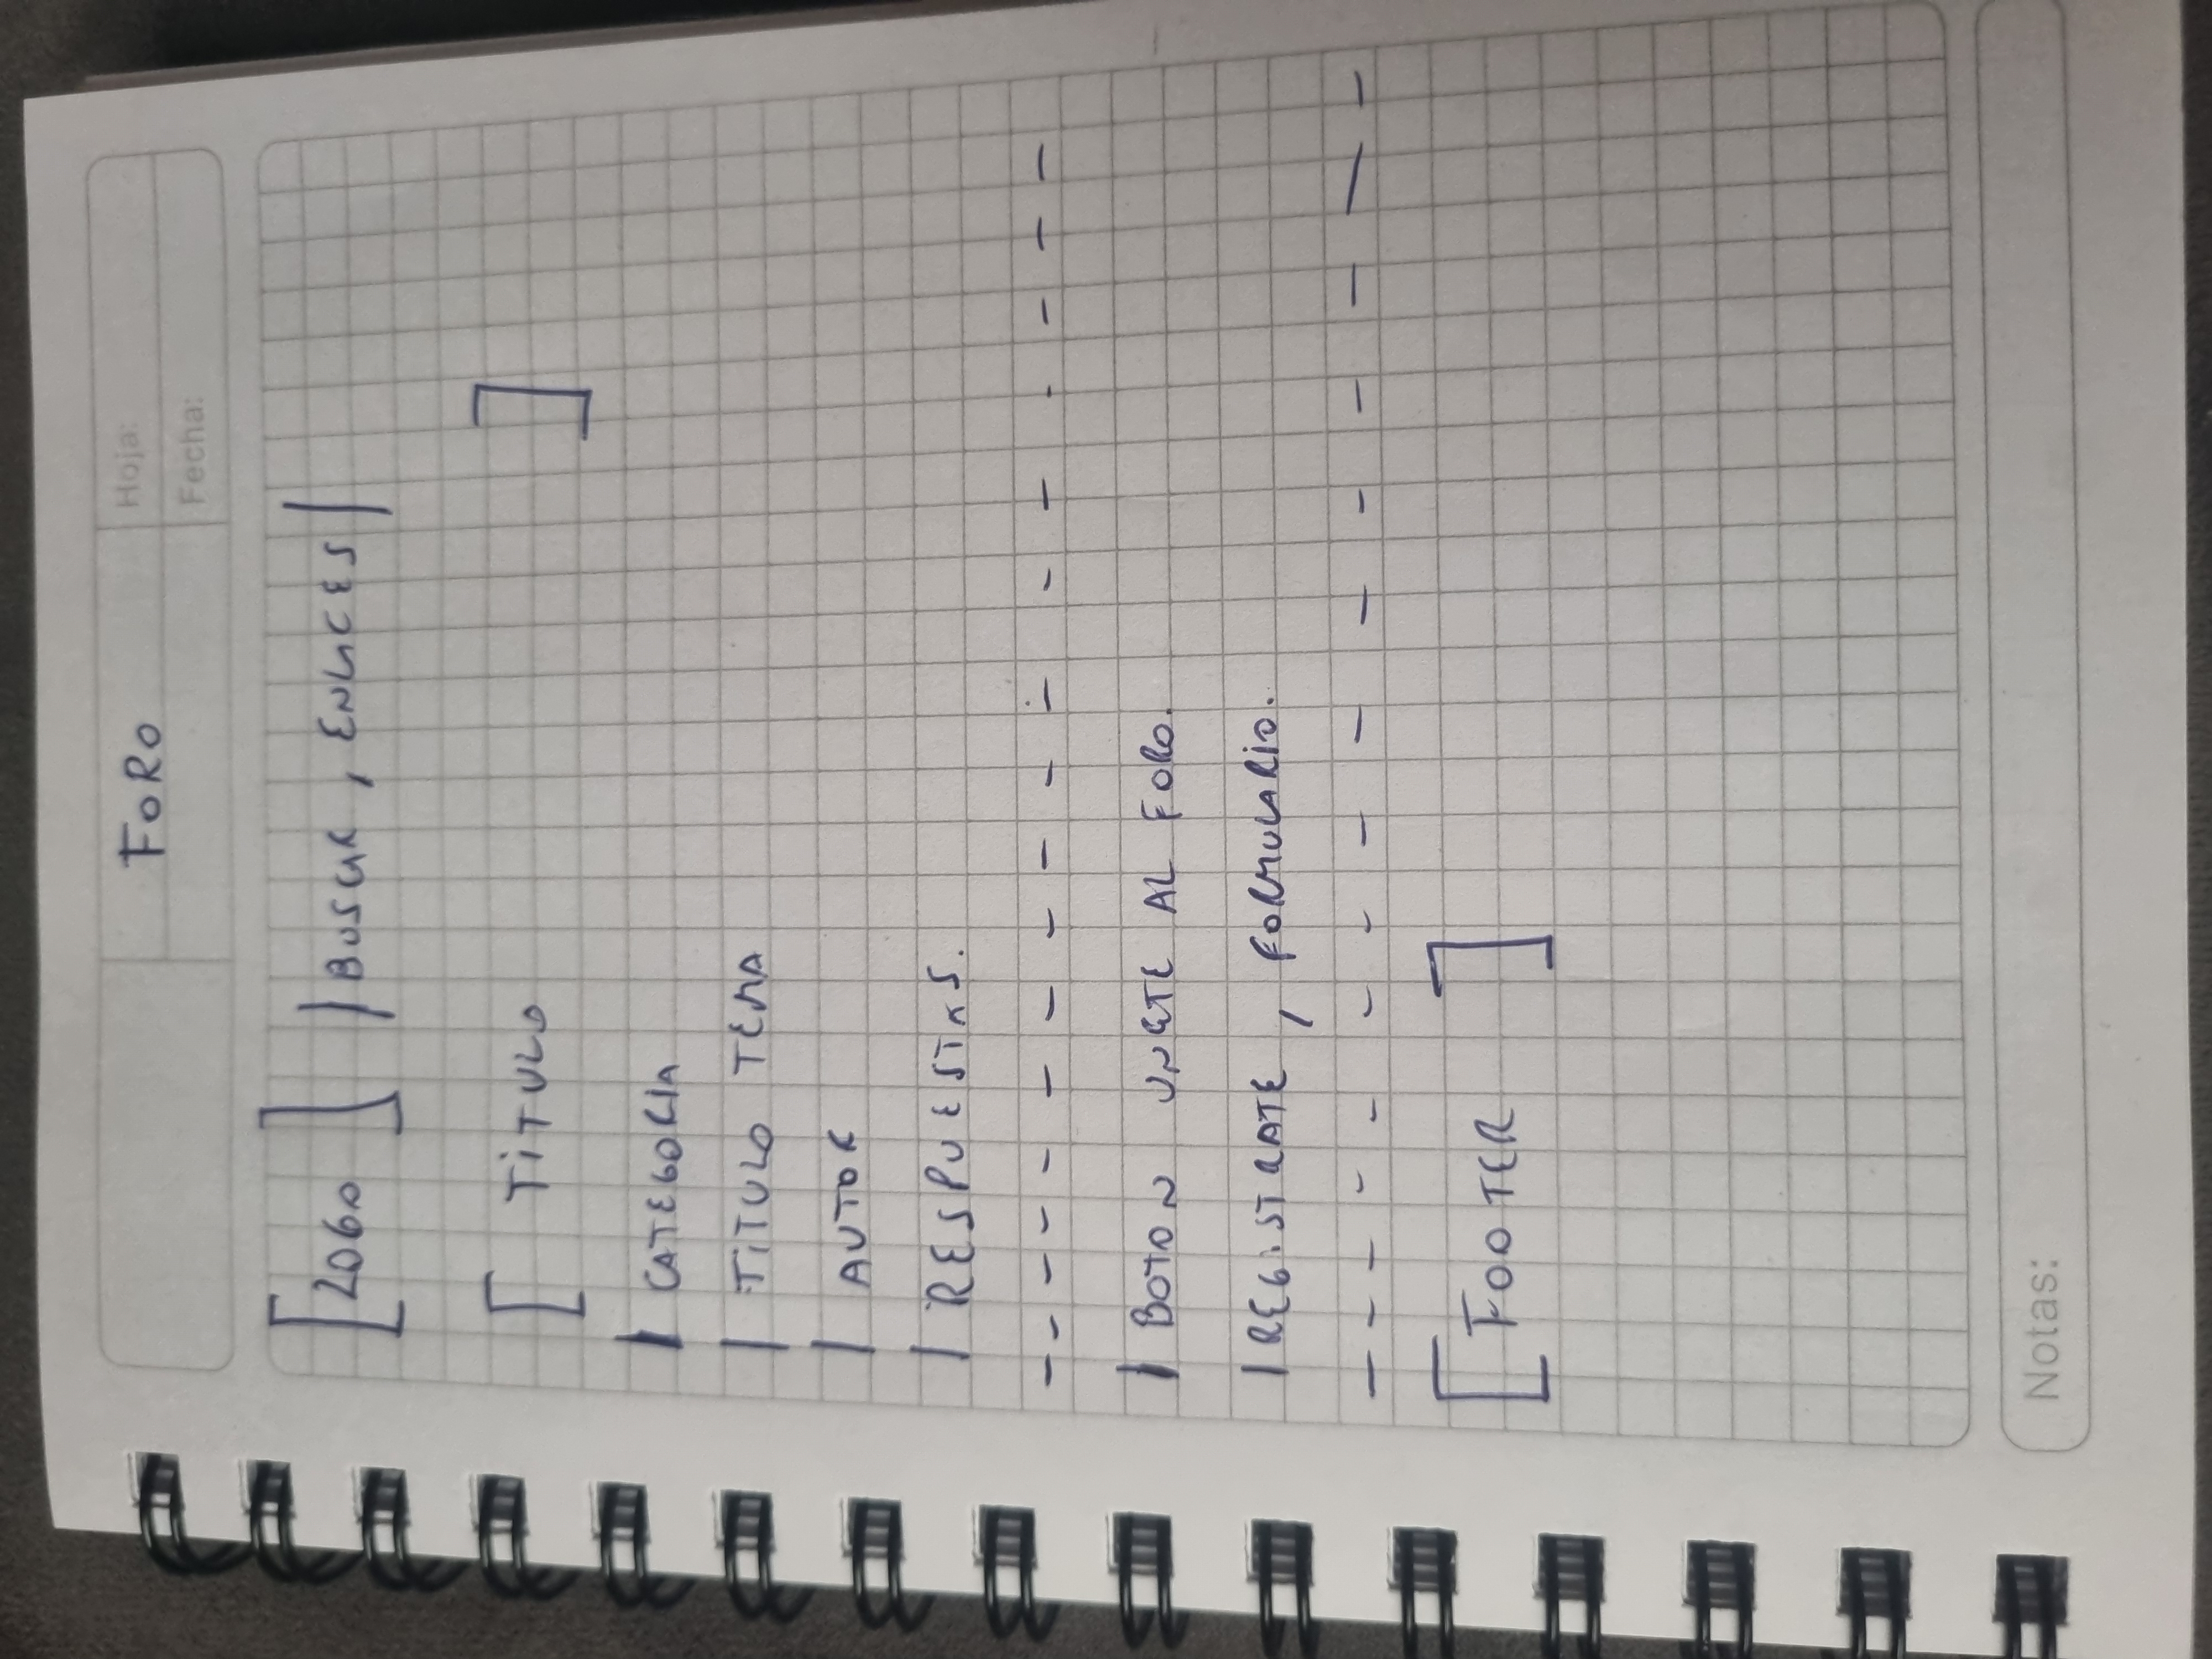 FORO
Hoja:
Fecha:
[LOGO] | BUSCAR, ENLACES |
[TITULO]
| CATEGORIA
| TITULO TEMA
| AUTOR
| RESPUESTAS.
- - - - - - - - - - - - - - - - -
| BOTON UNETE AL FORO.
| REGISTRATE, FORMULARIO.
- - - - - - - - - - - - - - -
[FOOTER]
Notas: